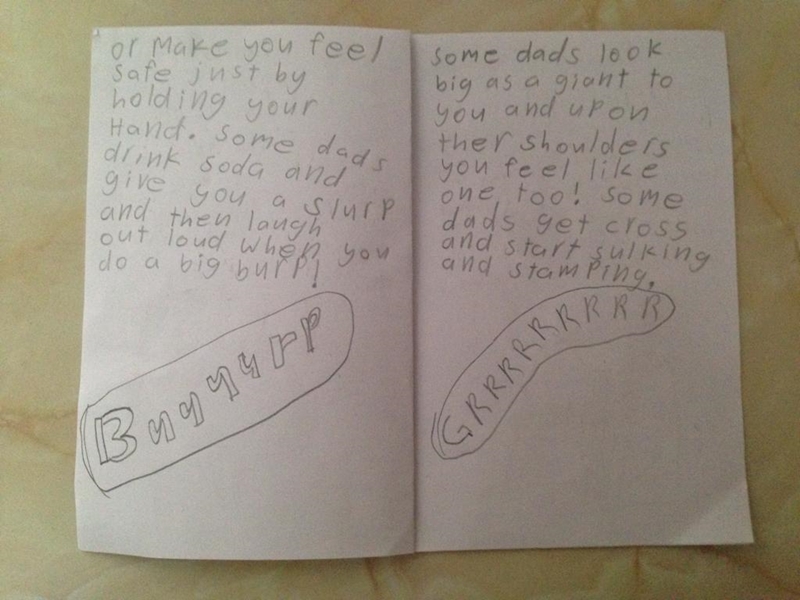 or Make you feel
safe just by
holding your
Hand. Some dads
drink soda and
give you a slurp
and then laugh
out loud when you
do a big burp!
Buuuurp
Some dads look
big as a giant to
you and upon
ther shoulders
you feel like
one too! Some
dads get cross
and start sulking
and stamping.
GRRRRRRRRR